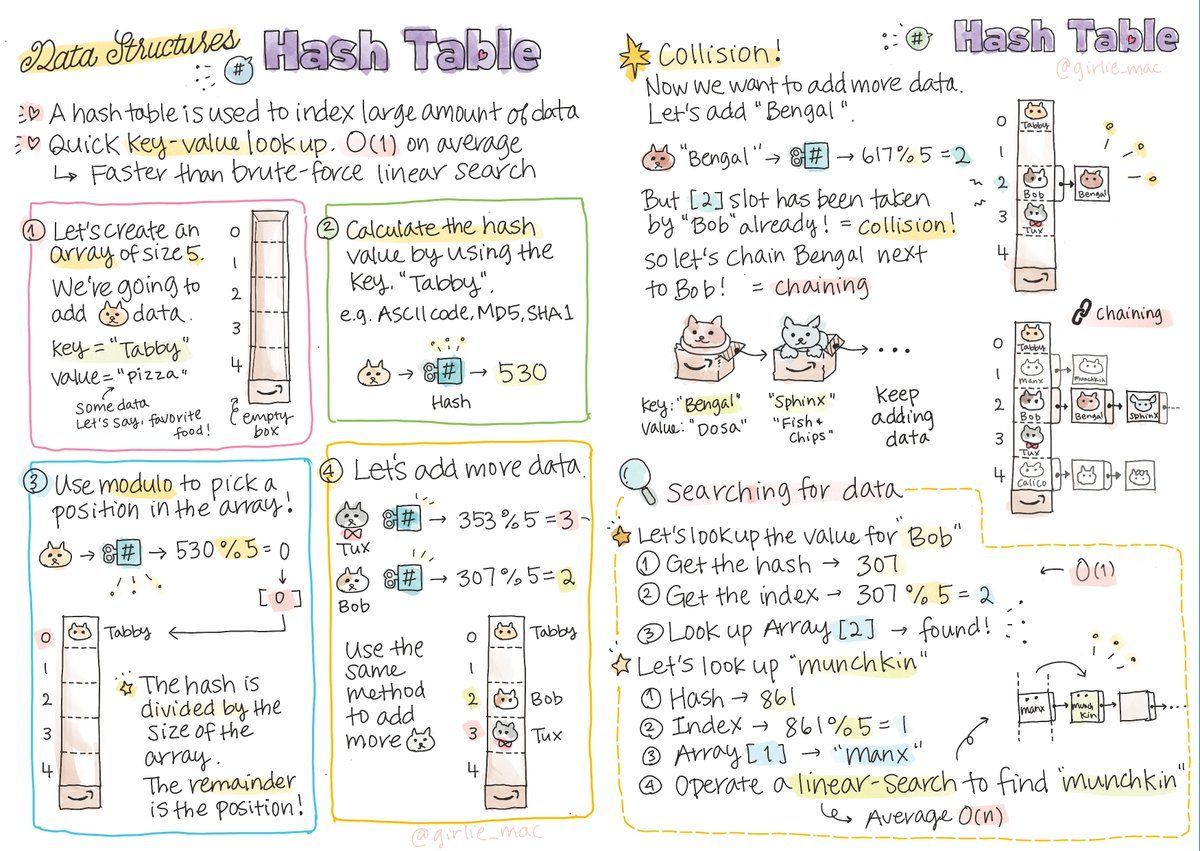 Data Structures
# Hash Table
A hash table is used to index large amount of data
Quick key-value look up. O(1) on average
↳ Faster than brute-force linear search
① Let's create an
array of size 5.
We're going to
add data.
key = "Tabby"
value = "pizza"
some data
Let's say, favorite
food!
0
1
2
3
4
empty
box
② Calculate the hash
value by using the
key. "Tabby".
e.g. ASCII code, MD5, SHA1
→ # → 530
Hash
③ Use modulo to pick a
position in the array!
→ # → 530 % 5 = 0
[0]
0 Tabby
1
2
3
4
The hash is
divided by the
size of the
array.
The remainder
is the position!
④ Let's add more data.
# → 353 % 5 = 3
Tux
# → 307 % 5 = 2
Bob
Use the
same
method
to add
more
0 Tabby
1
2 Bob
3 Tux
4
@girlie_mac
# Hash Table
@girlie_mac
Collision!
Now we want to add more data.
Let's add "Bengal".
"Bengal" → # → 617 % 5 = 2
But [2] slot has been taken
by "Bob" already! = collision!
so let's chain Bengal next
to Bob! = chaining
0 Tabby
1
2 Bob → Bengal
3 Tux
4
key: "Bengal"
value: "Dosa"
"Sphinx"
"Fish &
Chips"
...
Keep
adding
data
chaining
0 Tabby
1 manx Munchkin
2 Bob Bengal Sphinx
3 Tux
4 Calico
Searching for data
Let's look up the value for "Bob"
① Get the hash → 307
② Get the index → 307 % 5 = 2
③ Look up Array [2] → found!
← O(1)
Let's look up "munchkin"
① Hash → 861
② Index → 861 % 5 = 1
③ Array [1] → "manx"
④ Operate a linear-search to find "munchkin"
↳ Average O(n)
manx → munch
kin → → ...